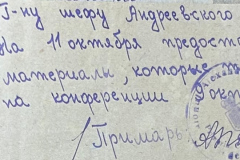 Г-ну шефу Андреевского
На 11 октября предоста
материалы, которые
на конференции окт
/Примарь/